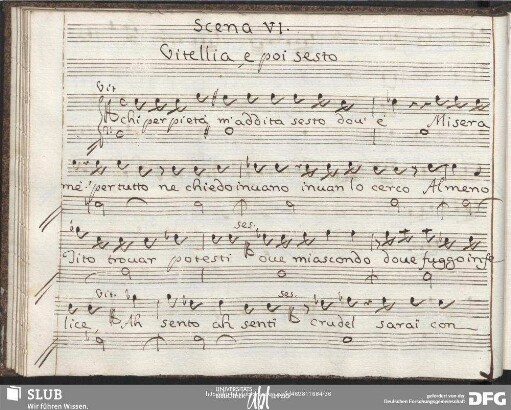 Scena VI.
Vitellia, e poi Sesto
Vit
Chi per pietà m'addita Sesto dov' è Misera
me! per tutto ne chiedo in vano in van lo cerco Almeno
Tito trovar potesti
ses:
Ove m'iascondo dove fuggo infe
lice
Vit:
Ah sento ah senti
ses:
Crudel sarai con
SLUB
Wir führen Wissen.
UNIVERSITÄTS
BIBLIOTHEK
gefördert von der
Deutschen Forschungsgemeinschaft
DFG